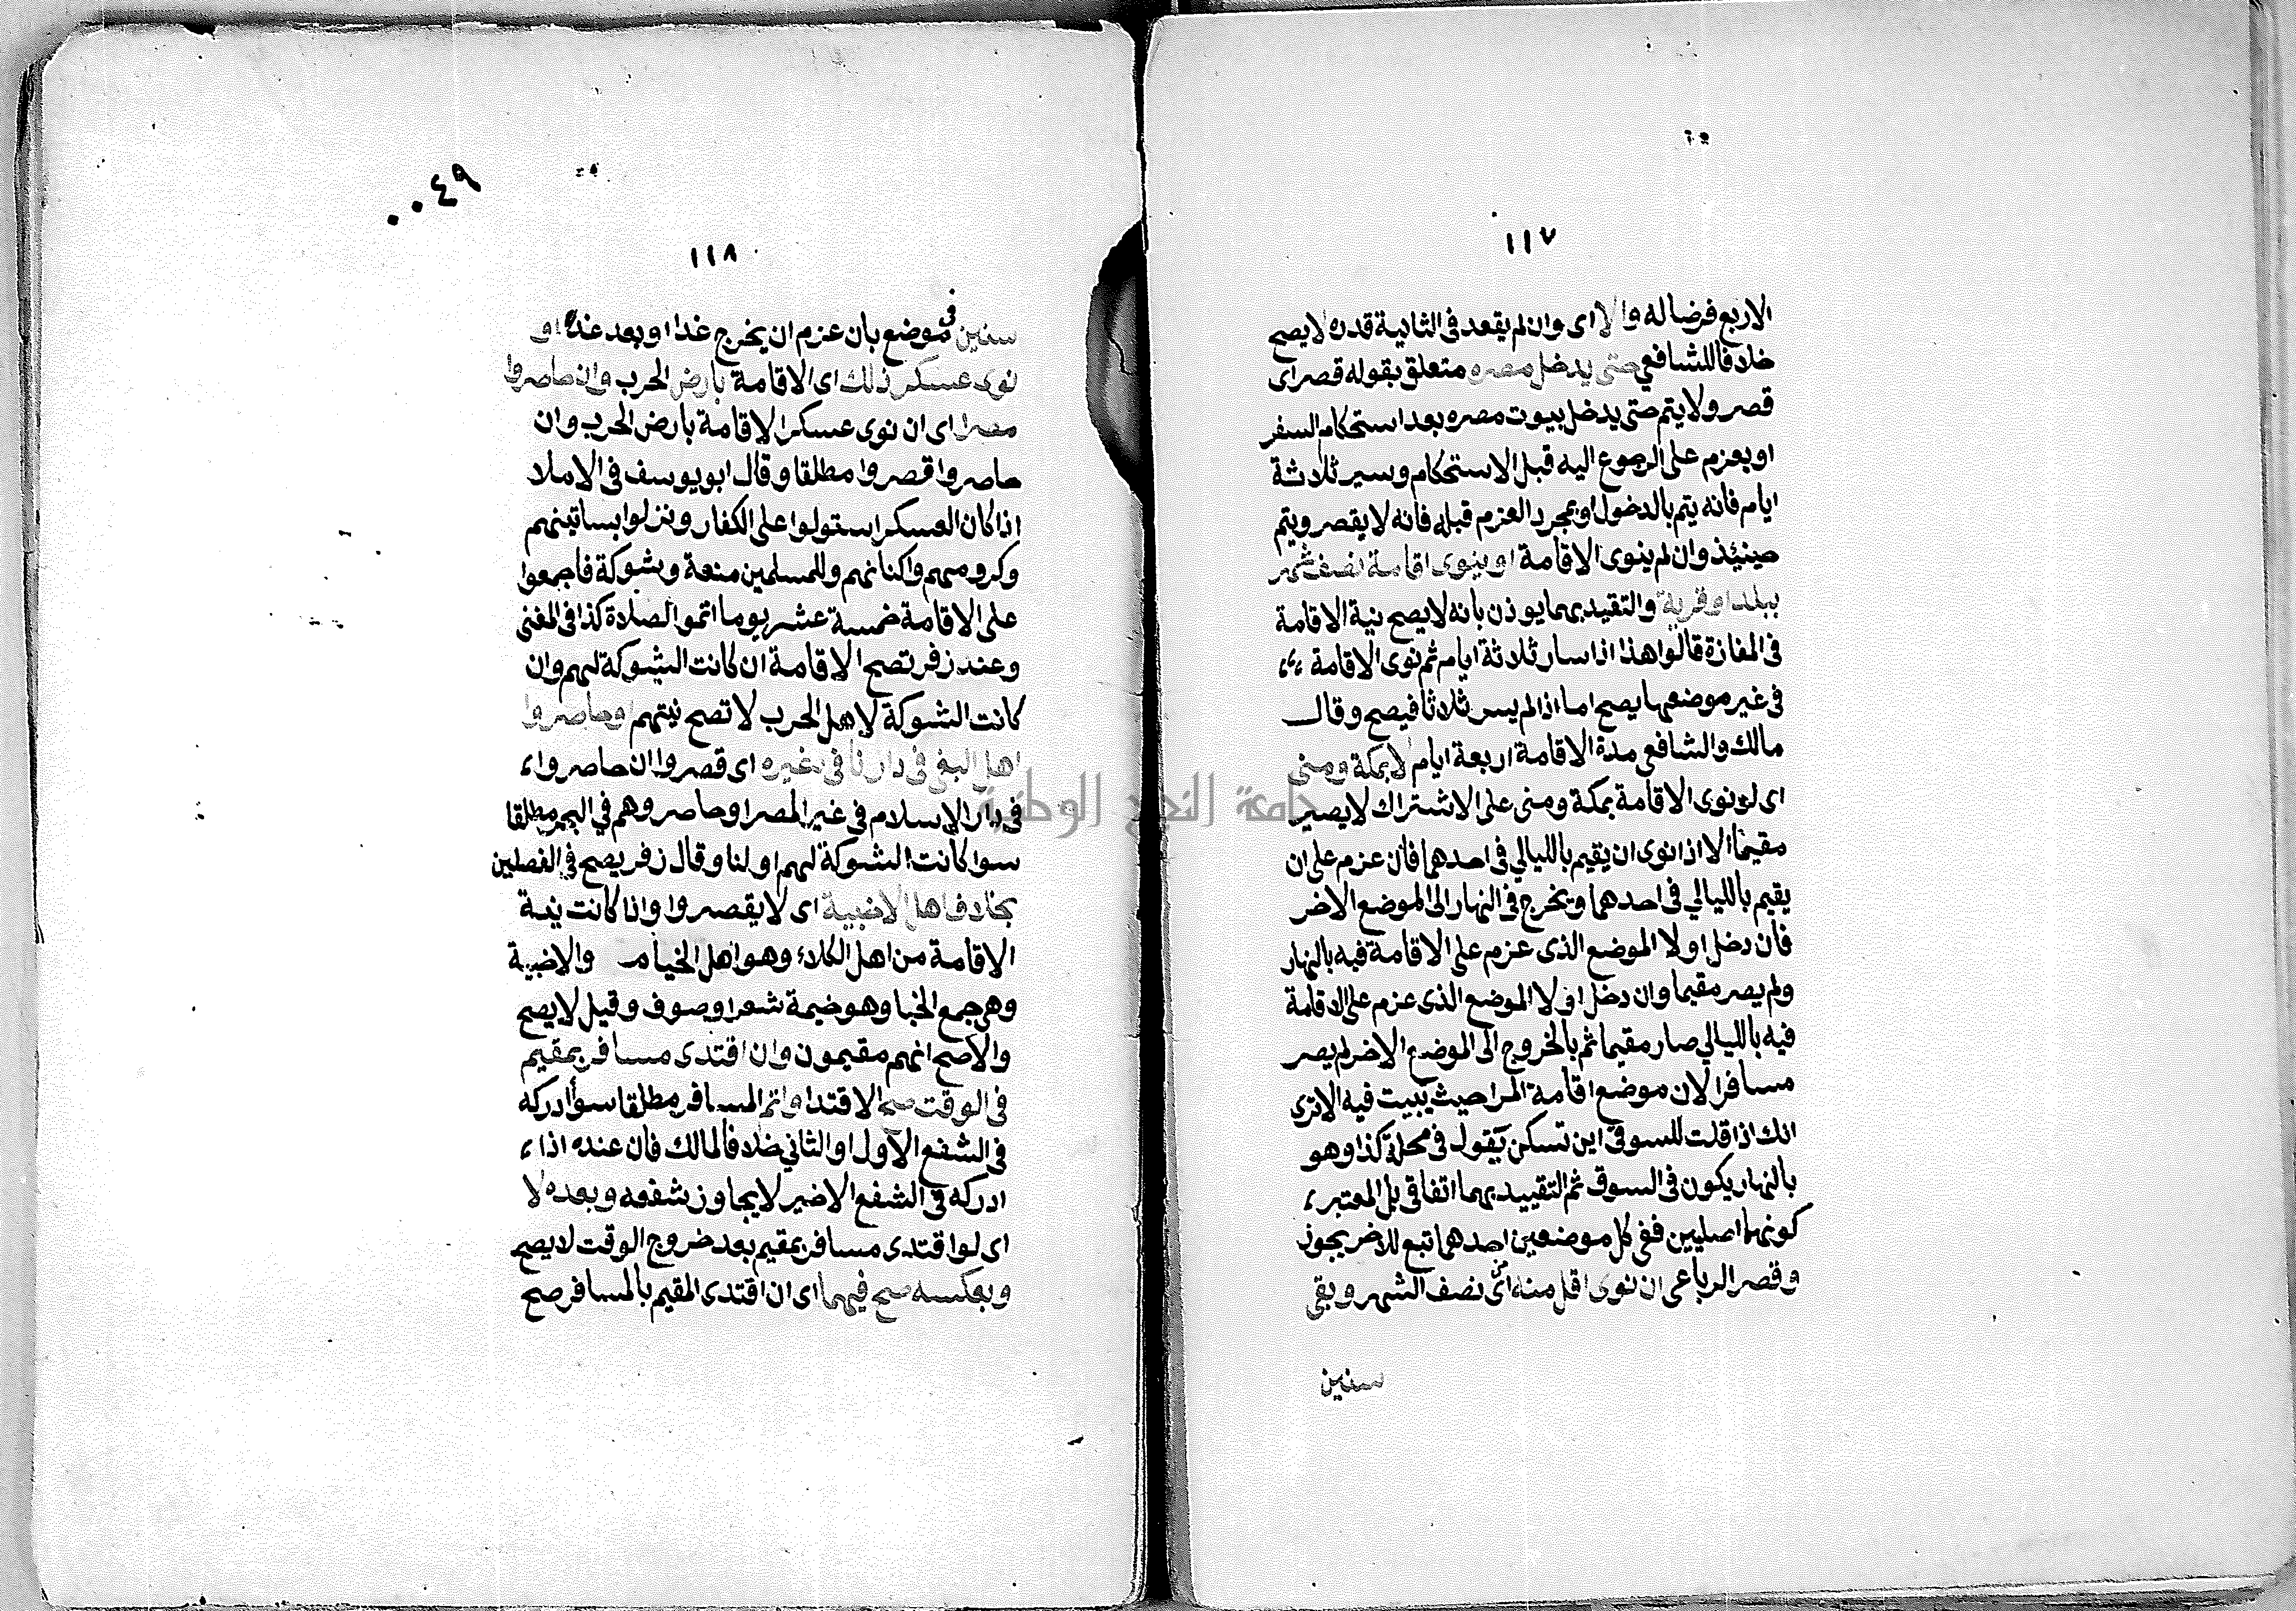 ١١٧
الاربع فرضا له والا اى وان لم يقعد فى الثانية قدره لا يصح
خلافا للشافعي حتى يدخل مصره متعلق بقوله قصر اى
قصر ولا يتم حتى يدخل بيوت مصره بعد استحكام السفر
او يعزم على الرجوع اليه قبل الاستحكام وسير ثلاثة
ايام فانه يتم بالدخول او بمجرد العزم قبله فانه لا يقصر ويتم
حينئذ وان لم ينوى الاقامة او ينوى اقامة نصف شهر
ببلد او قرية والتقيد بهما يوذن بانه لا يصح نية الاقامة
فى المفازة قالوا هذا اذا سار ثلاثة ايام ثم نوى الاقامة
فى غير موضعها يصح اما اذا لم يسر ثلاثا فيصح وقال
مالك والشافعى مدة الاقامة اربعة ايام لا بمكة ومنى
اى لو نوى الاقامة بمكة ومنى على الاشتراك لا يصير
مقيما الا اذا نوى ان يقيم بالليالي فى احدهما فان عزم على ان
يقيم بالليالي فى احدهما ويخرج فى النهار الى الموضع الاخر
فان دخل اولا الموضع الذى عزم على الاقامة فيه بالنهار
ولم يصر مقيما وان دخل اولا الموضع الذى عزم على الاقامة
فيه بالليالي صار مقيما ثم بالخروج الى الموضع الاخر لم يصر
مسافرا لان موضع اقامة المرا حيث يبيت فيه الا ترى
انك اذا قلت للسوقى اين تسكن يقول فى محلة كذا وهو
بالنهار يكون فى السوق ثم التقييد بهما اتفاقى بل المعتبر
كونهما اصليين ففى كل موضعين احدهما تبع للاخر يجوز
وقصر الرباعى ان نوى اقل منه اى من نصف الشهر وبقى
سنين
٠٠٤٩
١١٨
سنين فى موضع بان عزم ان يخرج غدا او بعد غد او
نوى عسكر ذلك اى الاقامة بارض الحرب وان حاصروا
مصرا اى ان نوى عسكر الاقامة بارض الحرب وان
حاصروا قصروا مطلقا وقال ابو يوسف فى الاملاء
اذا كان العسكر استولوا على الكفار ونزلوا بساتينهم
وكرومهم واكنانهم وللمسلمين منعة وشوكة فاجمعوا
على الاقامة خمسة عشر يوما اتموا الصلاة كذا فى المغنى
وعند زفر تصح الاقامة ان كانت الشوكة لهم وان
كانت الشوكة لاهل الحرب لا تصح نيتهم او حاصروا
اهل البغى فى دارنا فى غيره اى قصروا ان حاصروا
فى دار الاسلام فى غير المصر او حاصروهم فى البحر مطلقا
سوا كانت الشوكة لهم او لنا وقال زفر يصح فى الفصلين
بخلاف اهل الاخبية اى لا يقصروا واذا كانت نية
الاقامة من اهل الكلاء وهو اهل الخيام والاخبية
وهى جمع الخبا وهو خيمة شعر او صوف وقيل لا يصح
والاصح انهم مقيمون وان اقتدى مسافر بمقيم
فى الوقت صح الاقتدا واتم المسافر مطلقا سوا ادركه
فى الشفع الاول او الثاني خلافا لمالك فان عنده اذا
ادركه فى الشفع الاخير لا يجاوز شفعه وبعده لا
اى لو اقتدى مسافر بمقيم بعد خروج الوقت لا يصح
وبعكسه صح فيهما اى ان اقتدى المقيم بالمسافر صح
جامعة النجاح الوطنية